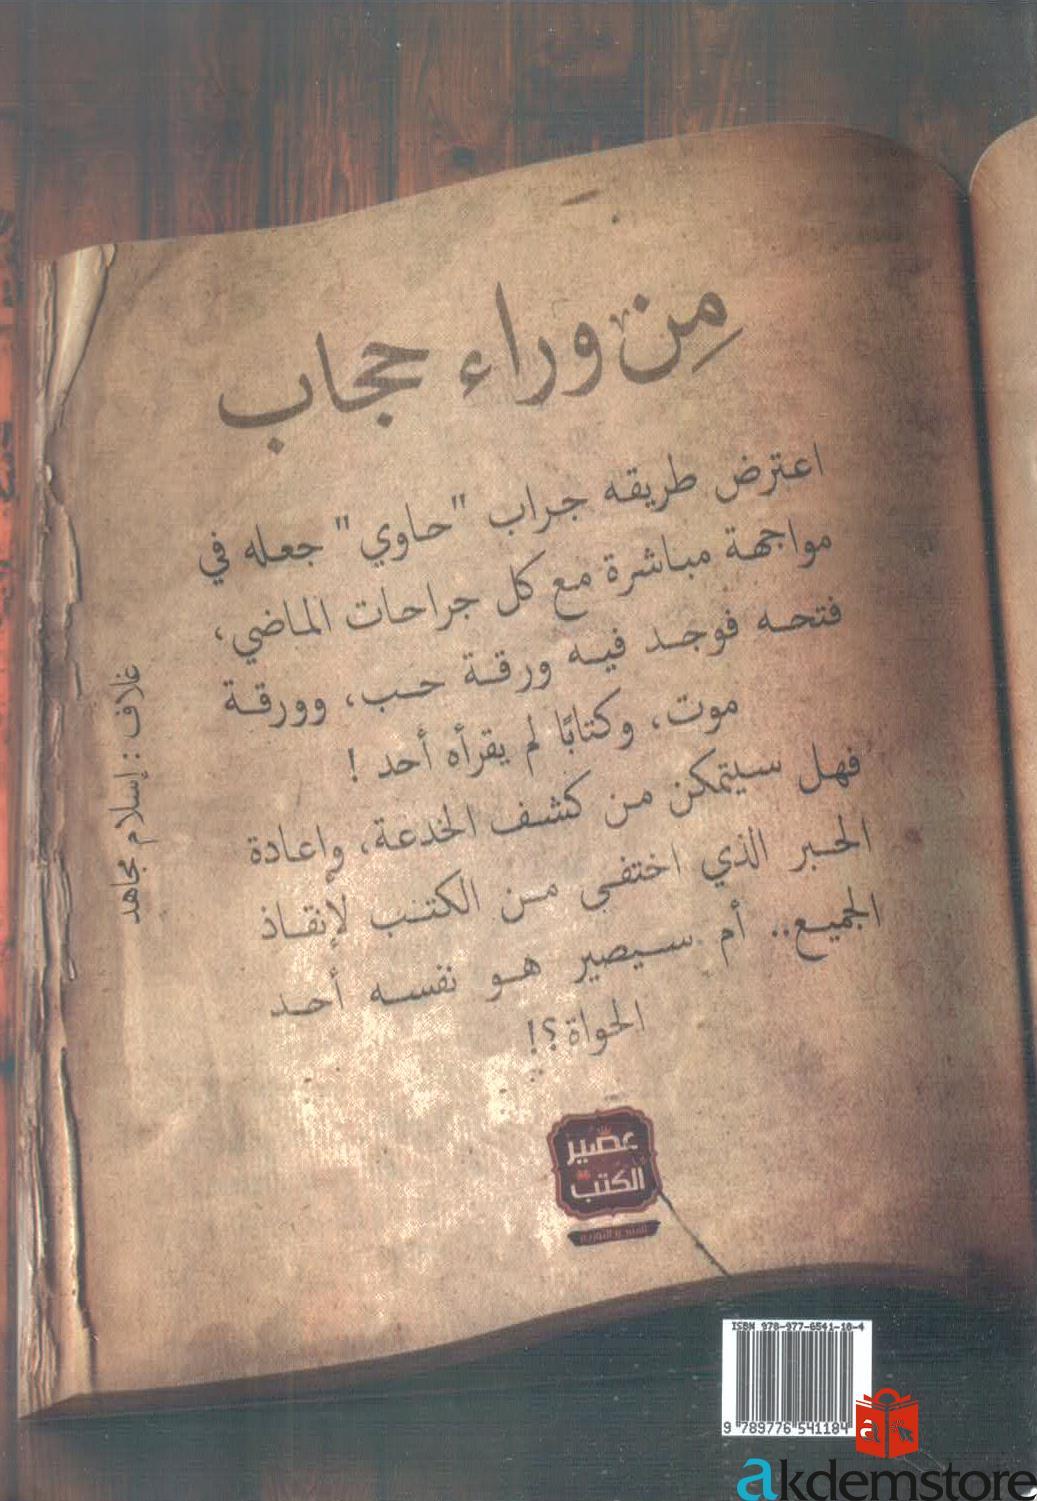 مِن وراء حجاب
اعترض طريقه جراب "حاوي" جعله في
مواجهة مباشرة مع كل جراحات الماضي،
فتحه فوجد فيه ورقة حب، وورقة
موت، وكتابًا لم يقرأه أحد !
فهل سيتمكن من كشف الخدعة، وإعادة
الحبر الذي اختفى من الكتب لإنقاذ
الجميع.. أم سيصير هو نفسه أحد
الحواة؟!
غلاف : إسلام مجاهد
عصير
الكتب
للنشر والتوزيع
ISBN 978-977-6541-18-4
9 789776 541184
a
akdemstore